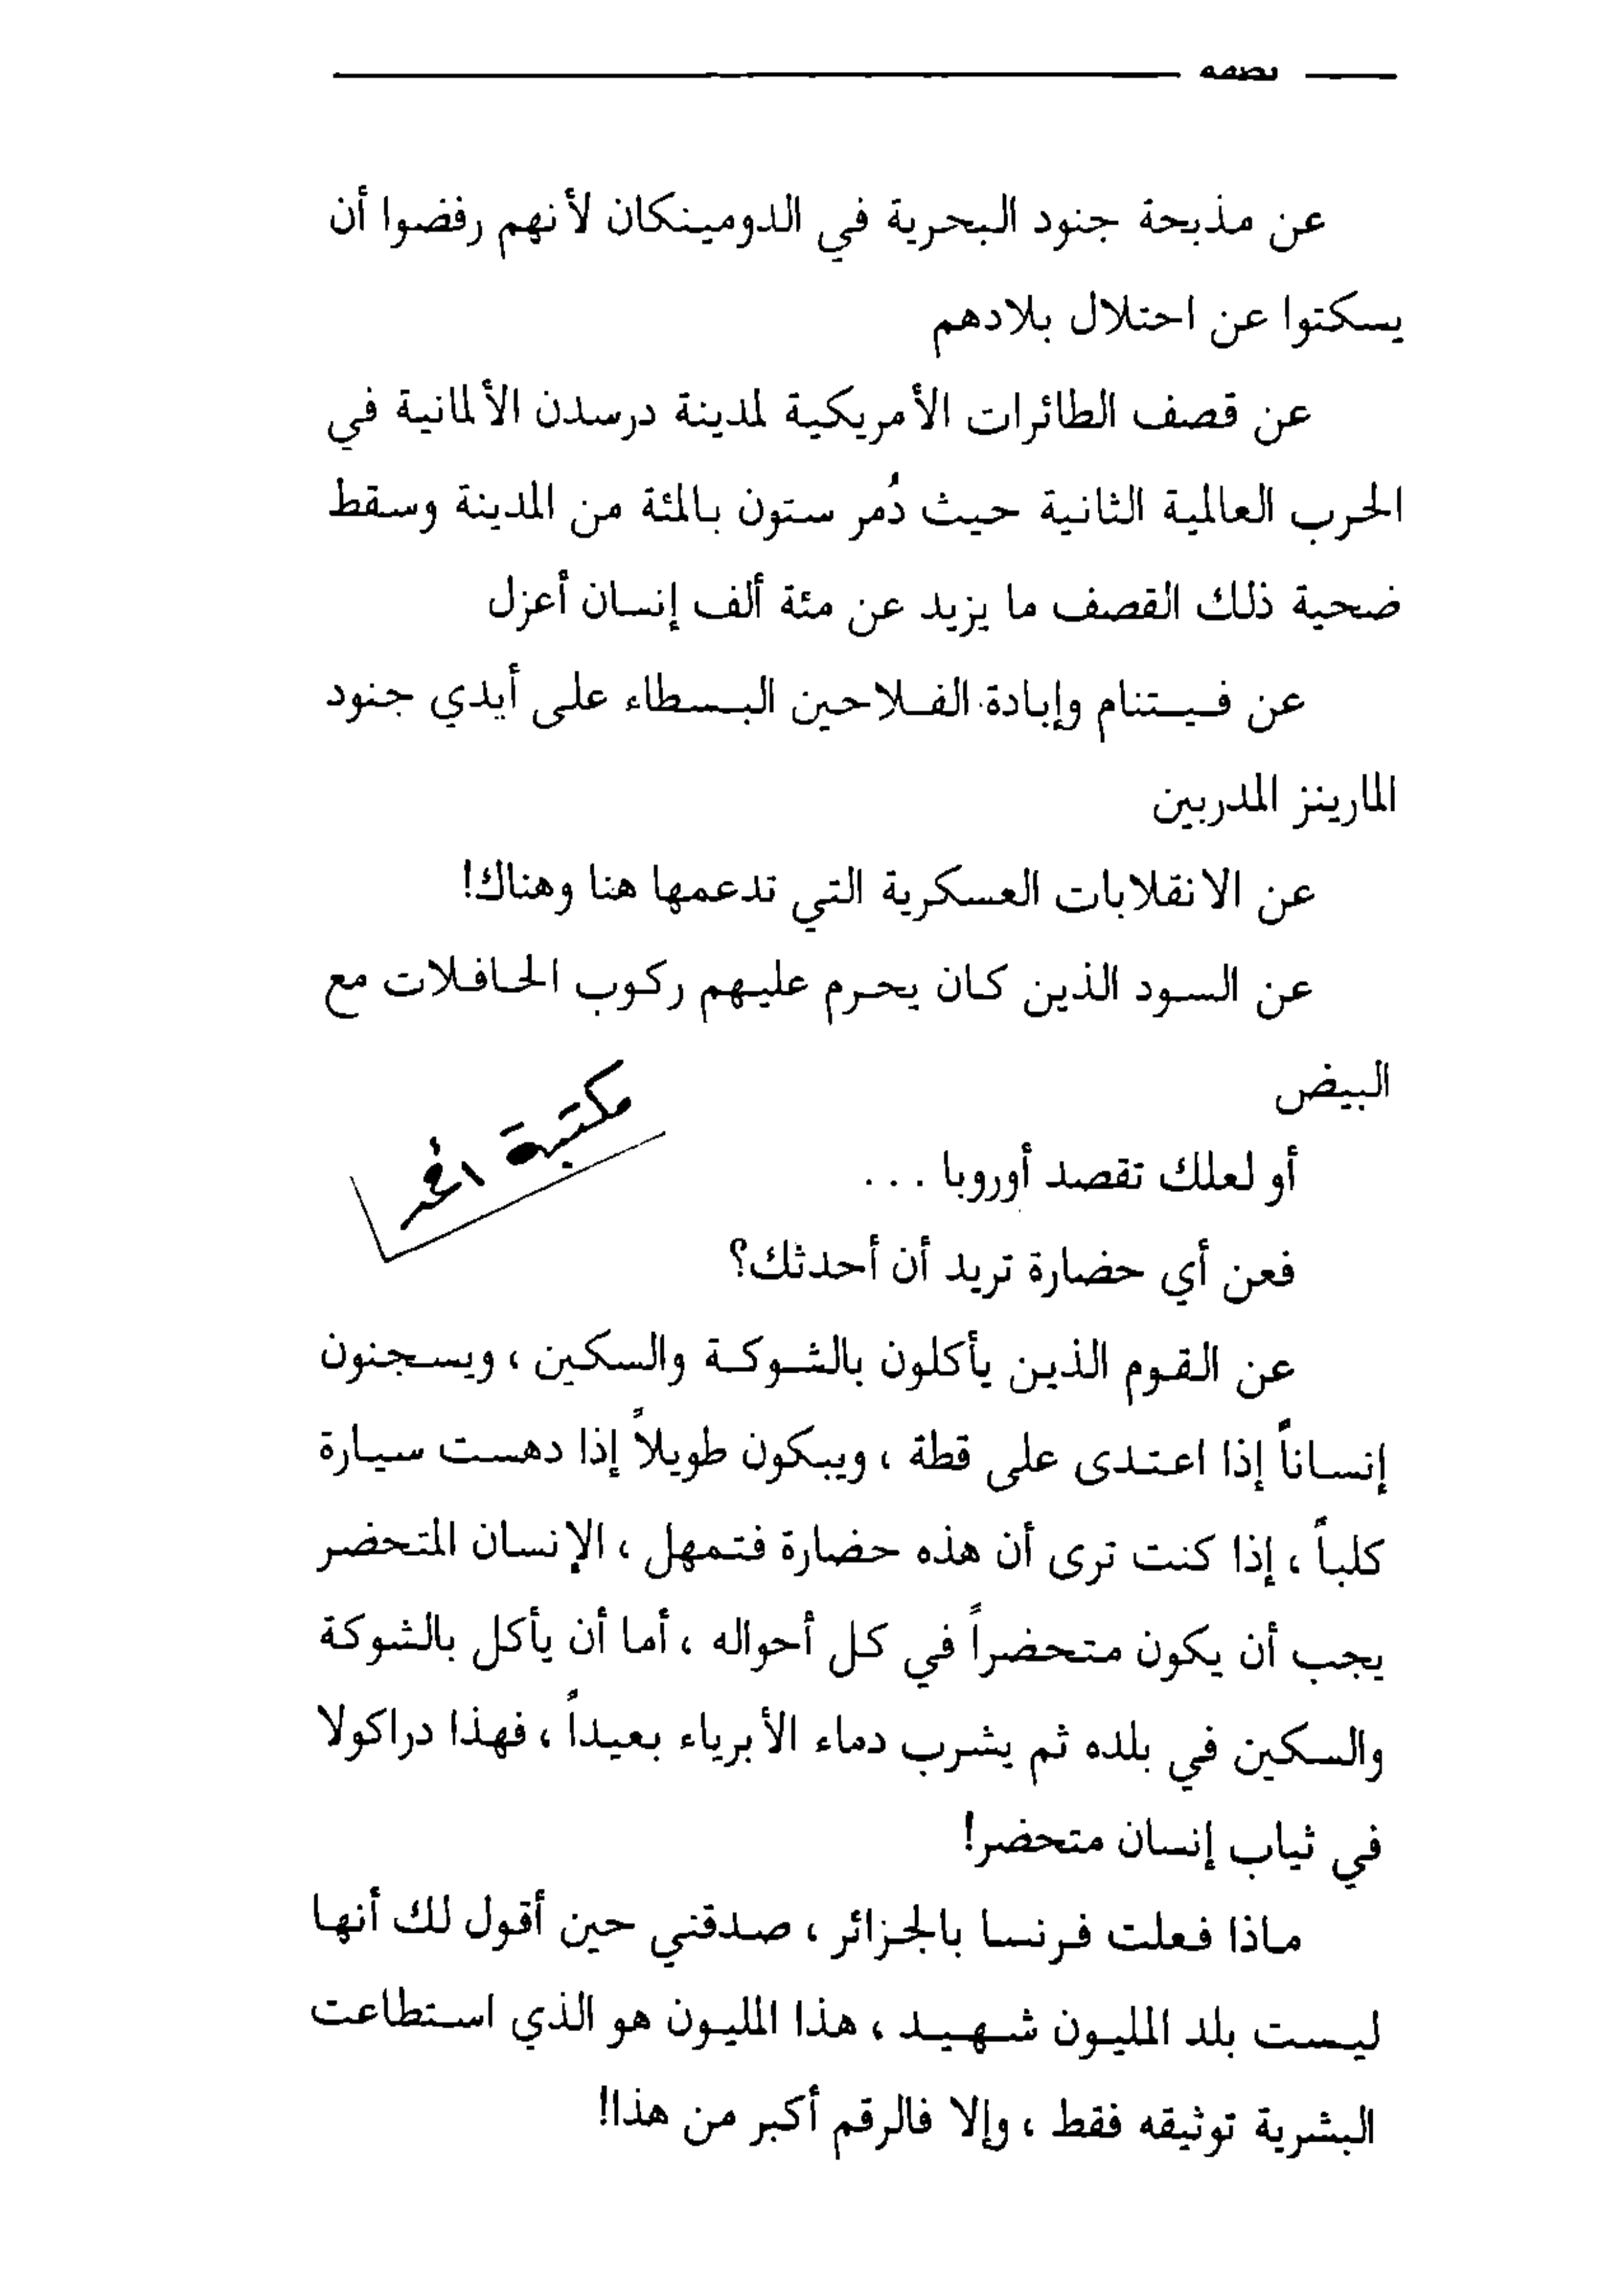 عن مذبحة جنود البحرية في الدومينكان لأنهم رفضوا أن
يسكتوا عن احتلال بلادهم
عن قصف الطائرات الأمريكية لمدينة درسدن الألمانية في
الحرب العالمية الثانية حيث دُمر ستون بالمئة من المدينة وسقط
ضحية ذلك القصف ما يزيد عن مئة ألف إنسان أعزل
عن فيتنام وإبادة الفلاحين البسطاء على أيدي جنود
المارينز المدربين
عن الانقلابات العسكرية التي تدعمها هنا وهناك!
عن السود الذين كان يحرم عليهم ركوب الحافلات مع
البيض
مكتبة
أو لعلك تقصد أوروبا ...
فعن أي حضارة تريد أن أحدثك؟
عن القوم الذين يأكلون بالشوكة والسكين ، ويسجنون
إنساناً إذا اعتدى على قطة ، ويبكون طويلاً إذا دهست سيارة
كلباً ، إذا كنت ترى أن هذه حضارة فتمهل ، الإنسان المتحضر
يجب أن يكون متحضراً في كل أحواله ، أما أن يأكل بالشوكة
والسكين في بلده ثم يشرب دماء الأبرياء بعيداً ، فهذا دراكولا
في ثياب إنسان متحضر!
ماذا فعلت فرنسا بالجزائر ، صدقني حين أقول لك أنها
ليست بلد المليون شهيد ، هذا المليون هو الذي استطاعت
البشرية توثيقه فقط ، وإلا فالرقم أكبر من هذا!